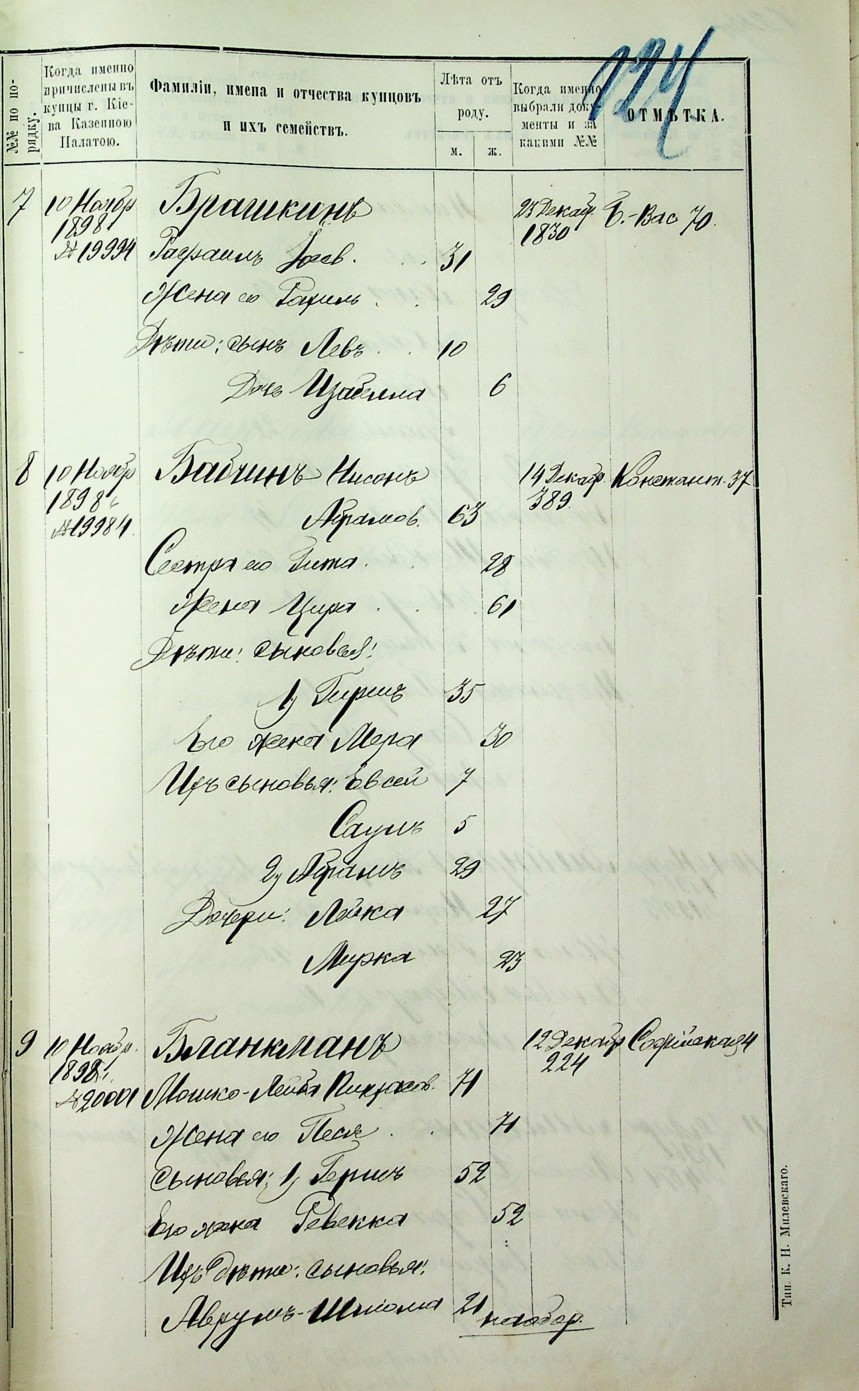 224
№№ по по-
рядку.
Когда именно
причислены въ
купцы г. Кіе-
ва Казенною
Палатою.
Фамиліи, имена и отчества купцовъ
и ихъ семействъ.
Лѣта отъ
роду.
м. ж.
Когда именно
выбрали доку-
менты и за
какими №№
ОТМѢТКА.
7 10 Ноябр Брашкинъ 23 Декабр. Б.-Вас 70.
1898 1830
№ 19994 Рафаилъ Іосев. 31
Жена его Рахиль 29
Дѣти: сынъ Левъ 10
Дочь Изабелла 6
8 10 Ноябр Бабчинъ Нисонъ 14 Декабр Констант. 37
1898 389
№ 19984. Абрамов. 63
Сестра его Гита 28
Жена Цира 61
Дѣти: сыновья:
1) Гиршъ 35
Его жена Мера 30
Ихъ сыновья: Евсей 7
Саулъ 5
2) Абрамъ 29
Дочери: Лейка 27
Мирка 23
9 10 Ноябр. Бланкманъ 12 Декабр Софійская 4
1898 224
№ 20001 Мошко-Лейба Пинхасов. 71
Жена его Песя 71
Сыновья: 1) Гершъ 52
Его жена Ревекка 52
Ихъ дѣти: сыновья:
Аврумъ-Шліома 21
на обор.
Тип. К. Н. Милевскаго.